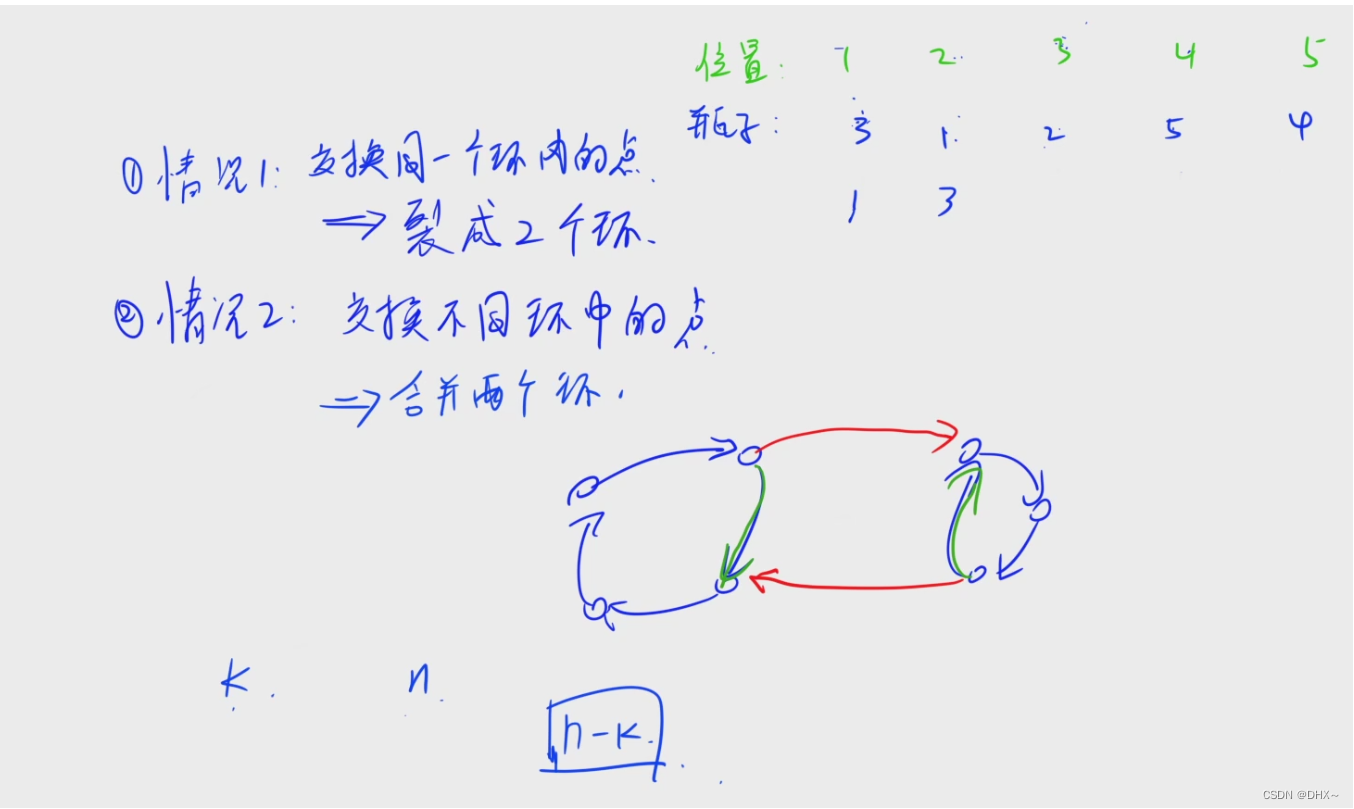 位置: 1 2 3 4 5
瓶子: 3 1 2 5 4
1 3
①情况1: 交换同一个环内的点.
⇒ 裂成2个环.
②情况2: 交换不同环中的点.
⇒ 合并两个环.
k. n.
n-k.
CSDN @DHX~